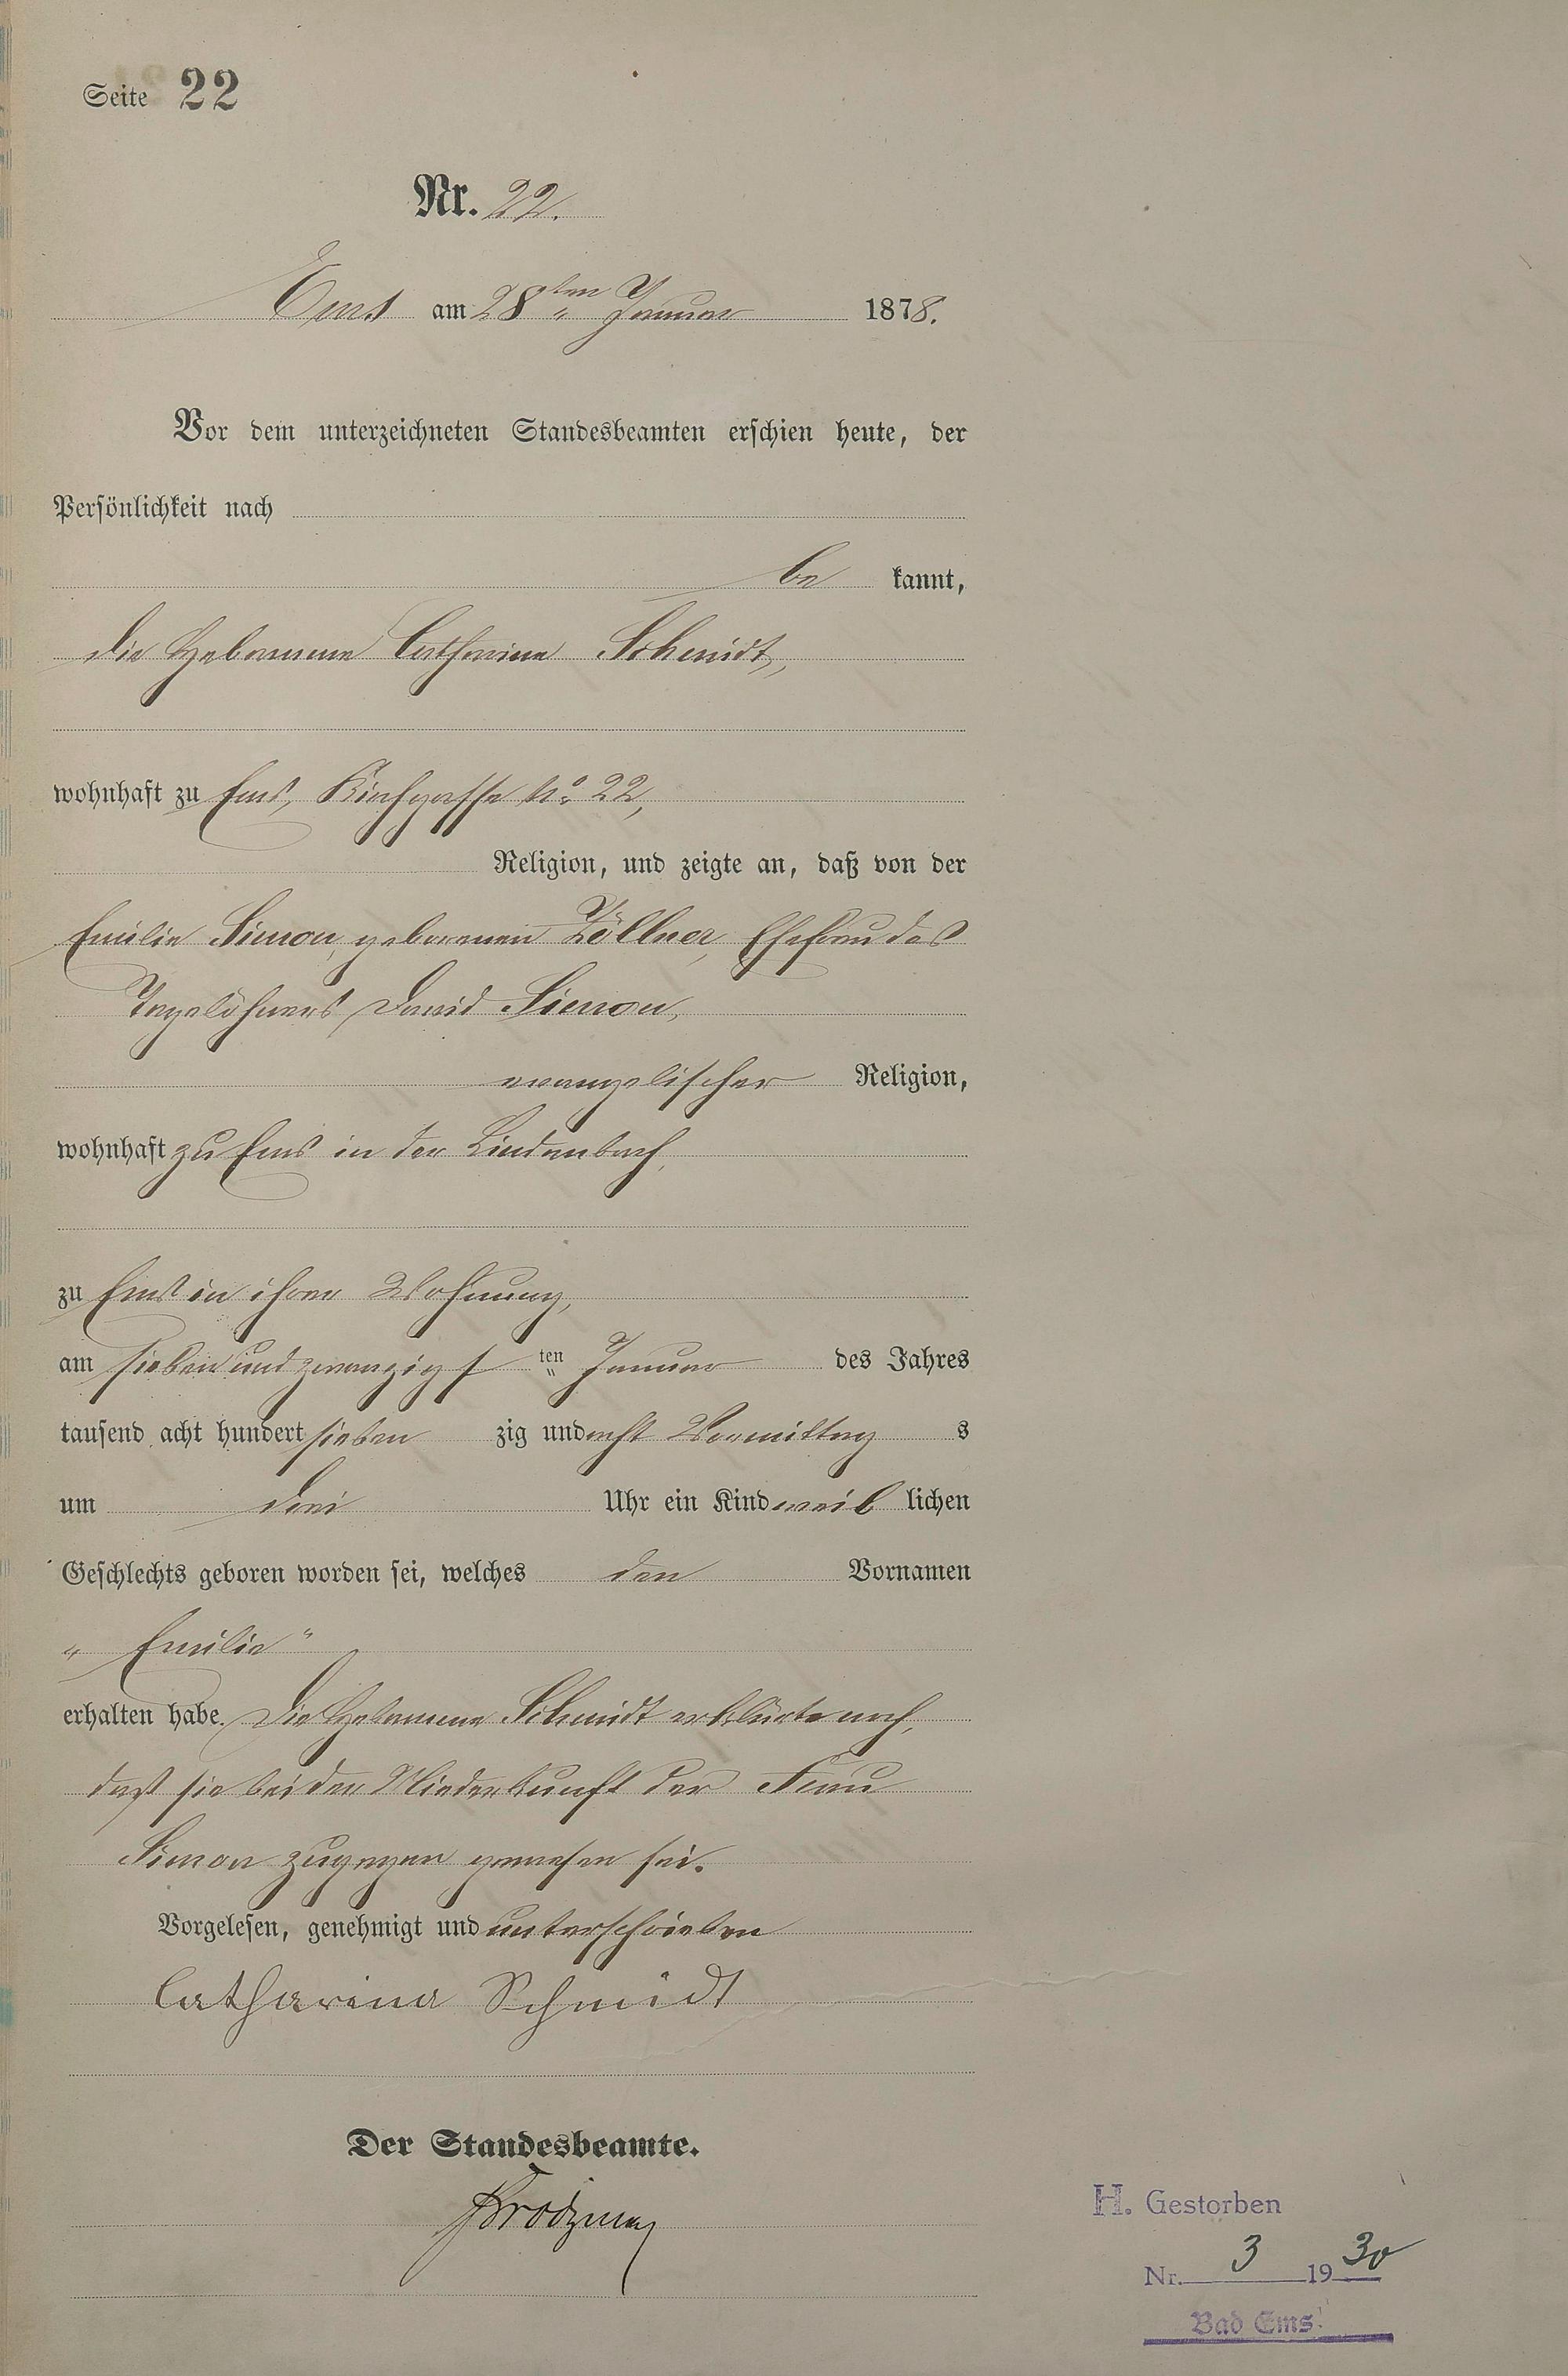 Seite 22
Nr. 22.
Ems am 28ten Januar 1878.
Vor dem unterzeichneten Standesbeamten erschien heute, der
Persönlichkeit nach
be kannt,
die Hebamme Catharina Schmidt,
wohnhaft zu Ems, Kirchgasse No 22,
Religion, und zeigte an, daß von der
Emilie Simon, geborenen Zöllner, Ehefrau des
Tagelöhners David Simon,
evangelischer Religion,
wohnhaft zu Ems in der Lindenbach,
zu Ems in ihrer Wohnung,
am sieben und zwanzigsten Januar des Jahres
tausend acht hundert sieben zig und acht Vormittag s
um drei Uhr ein Kind weib lichen
Geschlechts geboren worden sei, welches den Vornamen
„Emilie“
erhalten habe. Die Hebamme Schmidt erklärte noch,
daß sie bei der Niederkunft der Frau
Simon zugegen gewesen sei.
Vorgelesen, genehmigt und unterschrieben
Catharina Schmidt
Der Standesbeamte.
H. Gestorben
Nr. 3 1930
Bad Ems